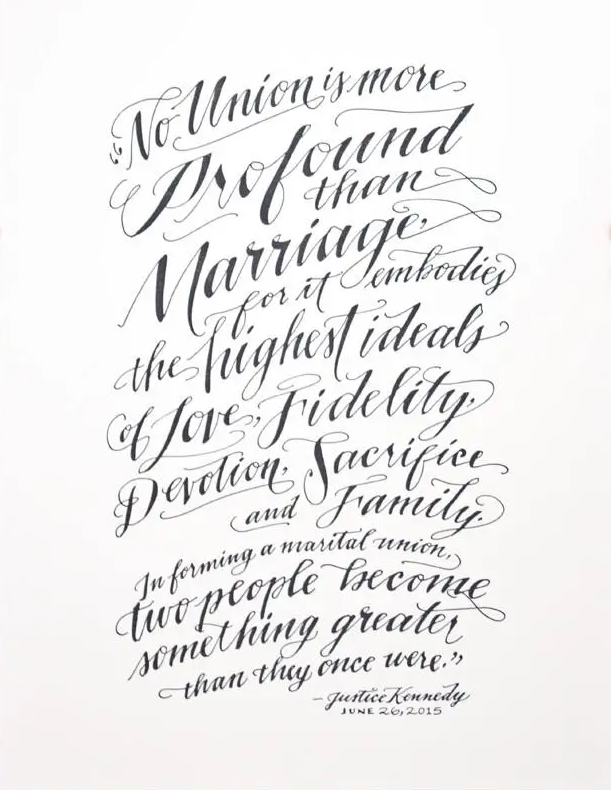 “No Union is more
Profound
than
Marriage,
for it embodies
the highest ideals
of Love, Fidelity,
Devotion, Sacrifice
and Family.
In forming a marital union,
two people become
something greater
than they once were.”
– Justice Kennedy
JUNE 26, 2015